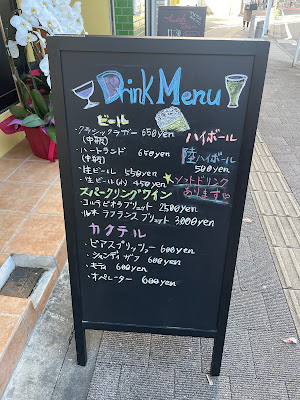 Drink Menu
ビール
・クラシックラガー 650yen
(中瓶)
・ハートランド 650yen
(中瓶)
・生ビール 550yen
・生ビール(小) 450yen
スパークリングワイン
・コルテビオラ ブリュット 2500yen
・ルネ ラフランス ブリット 3,000yen
カクテル
・ピアスプリッツァー 600yen
・シャンディ ガフ 600yen
・キティ 600yen
・オペレーター 600yen
ハイボール
陸ハイボール
500yen
ソフトドリンク
あります